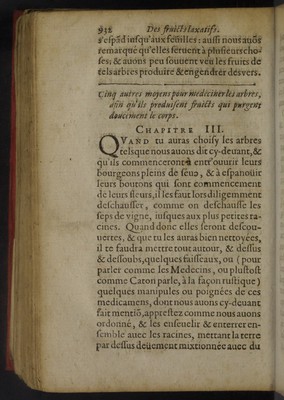 932 Des fruicts laxatifs.
s'espãd iusqu'aux feuilles: aussi nous auõs
remarqué qu'elles seruent à plusieurs cho-
ses: & auons peu souuent veu les fruits de
tels arbres produire & engendrer des vers.
Cinq autres moyens pour medeciner les arbres,
afin qu'ils produisent fruicts qui purgent
doucement le corps.
CHAPITRE III.
QVAND tu auras choisy les arbres
tels que nous auons dit cy-deuant, &
qu'ils commenceront à entr'ouurir leurs
bourgeons pleins de seue, & à espanoüir
leurs boutons qui sont commencement
de leurs fleurs, il les faut lors diligemment
deschausser, comme on deschausse les
seps de vigne, iusques aux plus petites ra-
cines. Quand donc elles seront descou-
uertes, & que tu les auras bien nettoyées,
il te faudra mettre tout autour, & dessus
& dessoubs, quelques faisseaux, ou (pour
parler comme les Medecins, ou plustost
comme Caton parle, à la façon rustique)
quelques manipules ou poignées de ces
medicamens, dont nous auons cy-deuant
fait mentiõ, apprestez comme nous auons
ordonné, & les enseuelir & enterrer en-
semble auec les racines, mettant la terre
par dessus deüement mixtionnée auec du